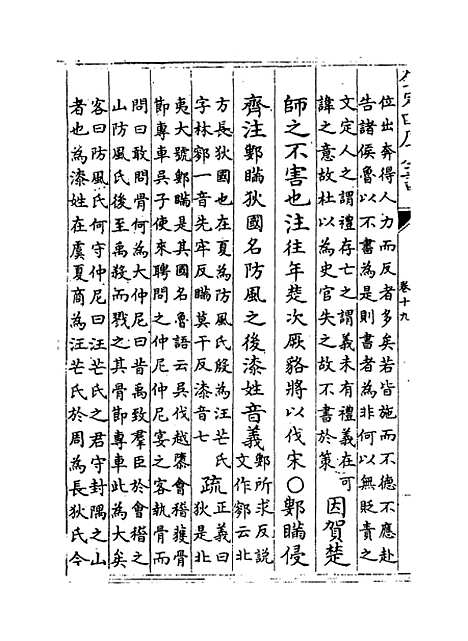 卷十九
位出奔得人力而反者多矣若皆施而不德不應赴
告諸侯魯以不書為是則書者為非何以無貶責之
文定人之謂禮存亡之謂義未有禮義在可
諱之意故杜以為史官失之故不書於策
因賀楚
師之不害也注往年楚次厥貉將以伐宋○鄋瞞侵
齊注鄋瞞狄國名防風之後漆姓音義
鄋所求反說
文作鄋云北
方長狄國也在夏為防風氏殷為汪芒氏
字林鄋一音先牢反瞞莫干反漆音七
疏
正義曰
狄是北
夷大號鄋瞞是其國名魯語云吳伐越墮會稽獲骨
節專車吳子使來聘問之仲尼仲尼宴之客執骨而
問曰敢問骨何為大仲尼曰昔禹致羣臣於會稽之
山防風氏後至禹殺而戮之其骨節專車此為大矣
客曰防風氏何守仲尼曰汪芒氏之君守封隅之山
者也為漆姓在虞夏商為汪芒氏於周為長狄氏今